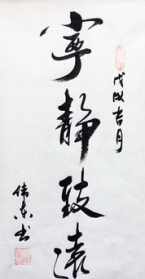 戊戌吉月
寧靜致遠
佳東书